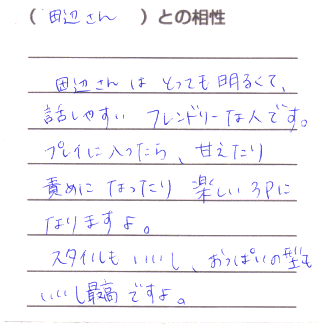 （田辺さん　）との相性
田辺さんは とっても明るくて、
話しやすい フレンドリーな人です。
プレイに入ったら、甘えたり
責めに なったり 楽しい3Pに
なりますよ。
スタイルも いいし、おっぱいの型も
いいし最高ですよ。